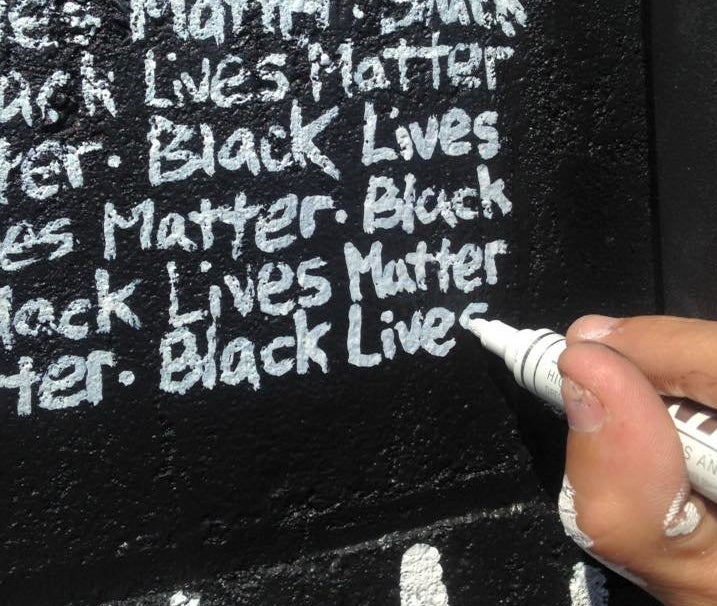 Matter. Black
Lives Matter
ter. Black Lives
es Matter. Black
lack Lives Matter
ter. Black Lives
S AN